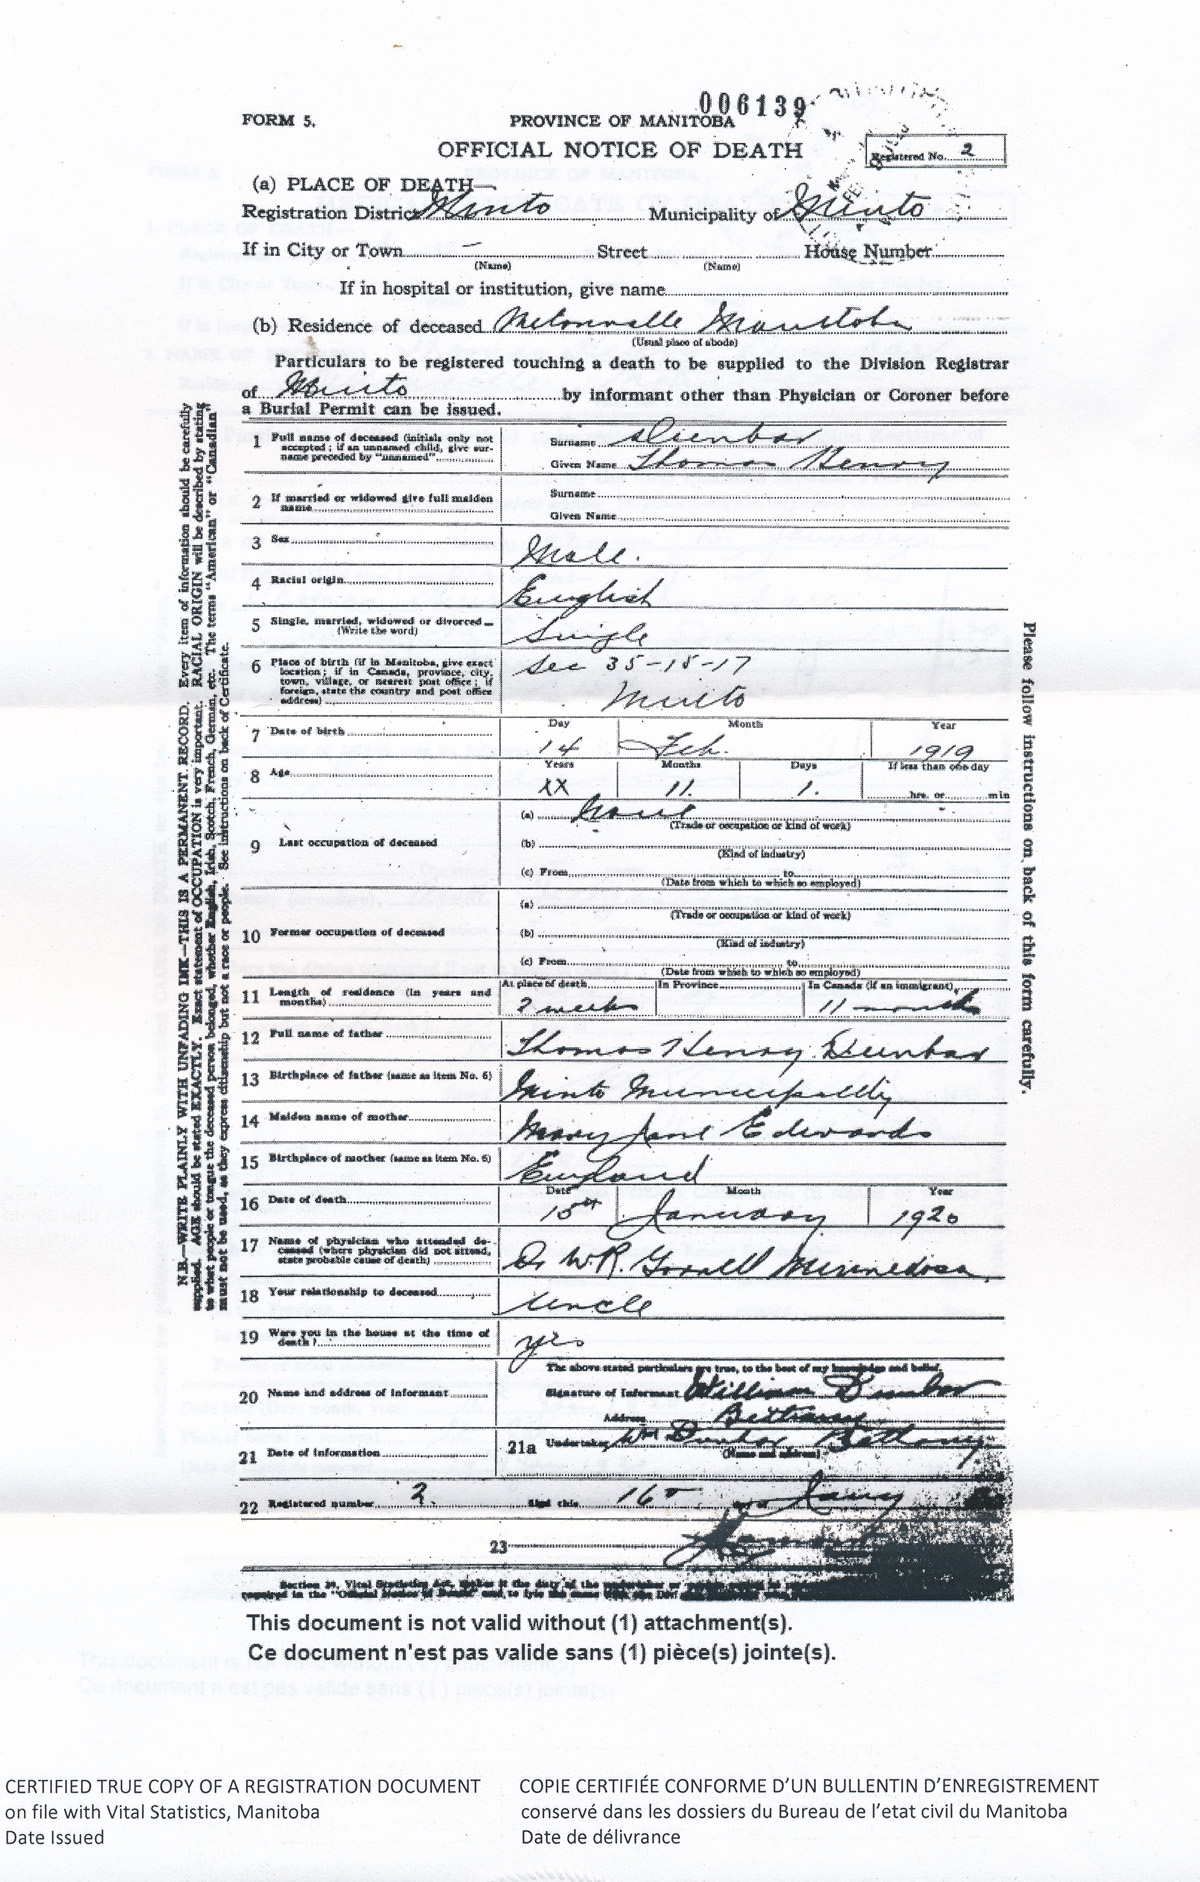 006139
FORM 5. PROVINCE OF MANITOBA
OFFICIAL NOTICE OF DEATH
Registered No. 2
(a) PLACE OF DEATH—
Registration District Minto Municipality of Minto
If in City or Town — Street House Number
(Name) (Name)
If in hospital or institution, give name
(b) Residence of deceased Manitoba
(Usual place of abode)
Particulars to be registered touching a death to be supplied to the Division Registrar
of Minto by informant other than Physician or Coroner before
a Burial Permit can be issued.
1 Full name of deceased (initials only not accepted; if an unnamed child, give surname preceded by "unnamed") Surname Dunbar
Given Name Thomas Henry
2 If married or widowed give full maiden name Surname
Given Name
3 Sex Male.
4 Racial origin English
5 Single, married, widowed or divorced— (Write the word) Single
6 Place of birth (if in Manitoba, give exact location; if in Canada, province, city, town, village, or nearest post office; if foreign, state the country and post office address) Sec 35-15-17
Minto
7 Date of birth Day 14 Month Feb. Year 1919
8 Age Years XX Months 11. Days 1. If less than one day hrs. or min
9 Last occupation of deceased (a) None
(Trade or occupation or kind of work)
(b)
(Kind of industry)
(c) From to
(Date from which to which so employed)
10 Former occupation of deceased (a)
(Trade or occupation or kind of work)
(b)
(Kind of industry)
(c) From to
(Date from which to which so employed)
11 Length of residence (in years and months) At place of death 2 weeks In Province In Canada (if an immigrant) 11 months
12 Full name of father Thomas Henry Dunbar
13 Birthplace of father (same as item No. 6) Minto Municipality
14 Maiden name of mother Mary Jane Edwards
15 Birthplace of mother (same as item No. 6) England
16 Date of death Date 15th Month January Year 1920
17 Name of physician who attended deceased (where physician did not attend, state probable cause of death) Dr W.R. Minnedosa
18 Your relationship to deceased Uncle
19 Were you in the house at the time of death? yes
The above stated particulars are true, to the best of my knowledge and belief.
20 Name and address of informant Signature of Informant William Dunbar
Address Bethany
21 Date of information 21a Undertaker Wm Dunbar Bethany
(Name and address)
22 Registered number 2. filed this 16
23
Section 34, Vital Statistics Act, makes it the duty of the undertaker or
required in the "Official Notice of Death" and to file the same with the
N.B.—WRITE PLAINLY WITH UNFADING INK—THIS IS A PERMANENT RECORD. Every item of information should be carefully
supplied. AGE should be stated EXACTLY. Exact statement of OCCUPATION is very important. RACIAL ORIGIN will be described by stating
to what people or tongue the deceased person belonged, whether English, Irish, Scotch, French, German, etc. The terms "American" or "Canadian"
must not be used, as they express citizenship but not a race or people. See instructions on back of Certificate.
Please follow instructions on back of this form carefully.
This document is not valid without (1) attachment(s).
Ce document n'est pas valide sans (1) pièce(s) jointe(s).
CERTIFIED TRUE COPY OF A REGISTRATION DOCUMENT
on file with Vital Statistics, Manitoba
Date Issued
COPIE CERTIFIÉE CONFORME D'UN BULLETIN D'ENREGISTREMENT
conservé dans les dossiers du Bureau de l'etat civil du Manitoba
Date de délivrance